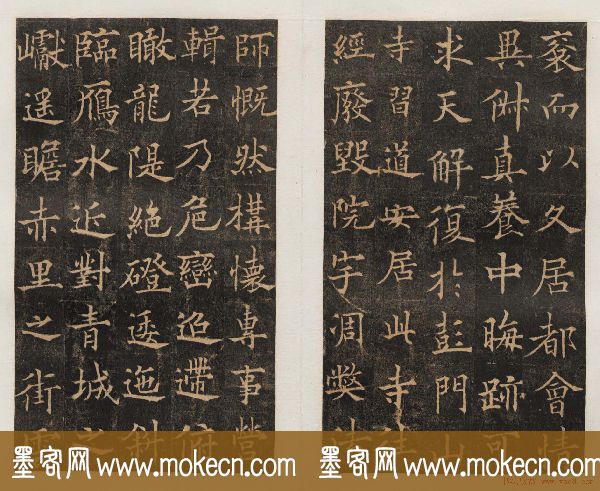 而以久居都會情
異真養中晦跡可
求天解復於彭門山
寺習道安居此寺往
經廢毀院宇凋弊法
師慨然搆懷專事營
輯若乃危巒迢遰俯
瞰龍隄絕磴逶迤斜
臨鴈水近對青城之
巘遥瞻赤里之街雲
墨客网 www.mokecn.com
墨客网 www.mokecn.com